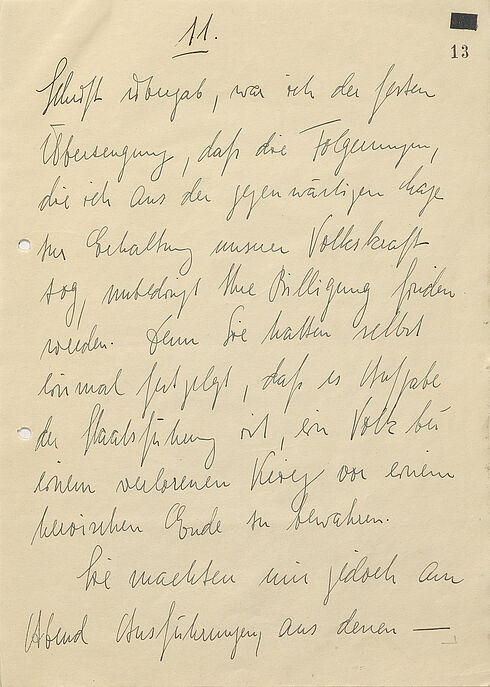 11.
13
Schrift übergab, war ich der festen
Überzeugung, daß die Folgerungen,
die ich aus der gegenwärtigen Lage
zur Erhaltung unserer Volkskraft
zog, unbedingt Ihre Billigung finden
werden. Denn Sie hatten selbst
einmal festgelegt, daß es Aufgabe
der Staatsführung ist, ein Volk bei
einem verlorenen Krieg vor einem
heroischen Ende zu bewahren.
Sie machten mir jedoch am
Abend Ausführungen, aus denen —